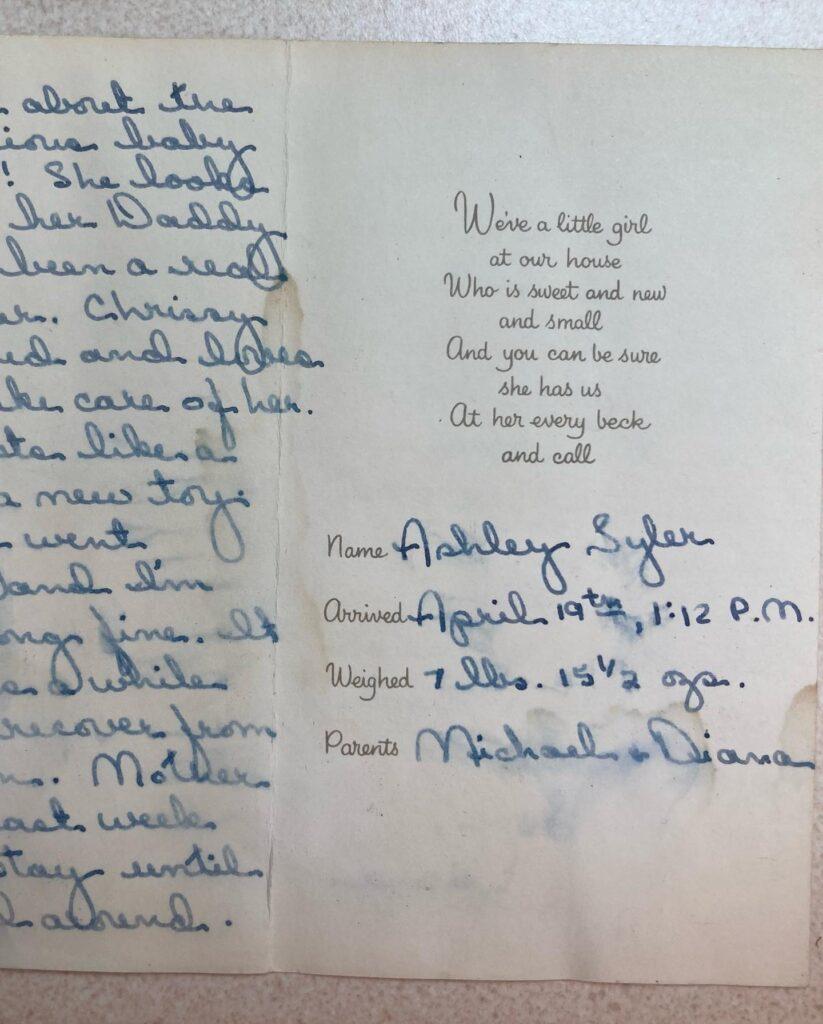 about the
baby
! She looks
her Daddy
been a real
Chrissy
and loves
care of her.
like a
new toy.
went
and I'm
fine. It
a while
recover from
Mother
week
stay until
around.
We've a little girl
at our house
Who is sweet and new
and small
And you can be sure
she has us
At her every beck
and call
Name Ashley Syler
Arrived April 19th, 1:12 P.M.
Weighed 7 lbs. 15 1/2 ozs.
Parents Michael & Diana